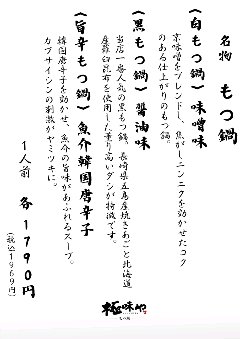 名物 もつ鍋
《白もつ鍋》味噌味
京味噌をブレンドし、焦がしニンニクを効かせたコク
のある仕上がりのもつ鍋。
《黒もつ鍋》醤油味
当店一番人気の黒もつ鍋。長崎県五島産焼きあごと北海道
産羅臼昆布を使用した薫り高いダシが特徴です。
《旨辛もつ鍋》魚介韓国唐辛子
韓国唐辛子を効かせ、魚介の旨味があふれるスープ。
カプサイシンの刺激がヤミツキに。
1人前 各1790円
(税込1969円)
極味や